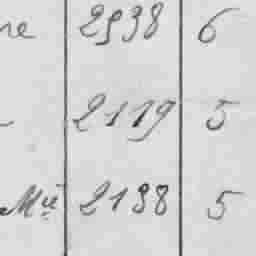 re 2938 6
2119 5
Mil 2138 5